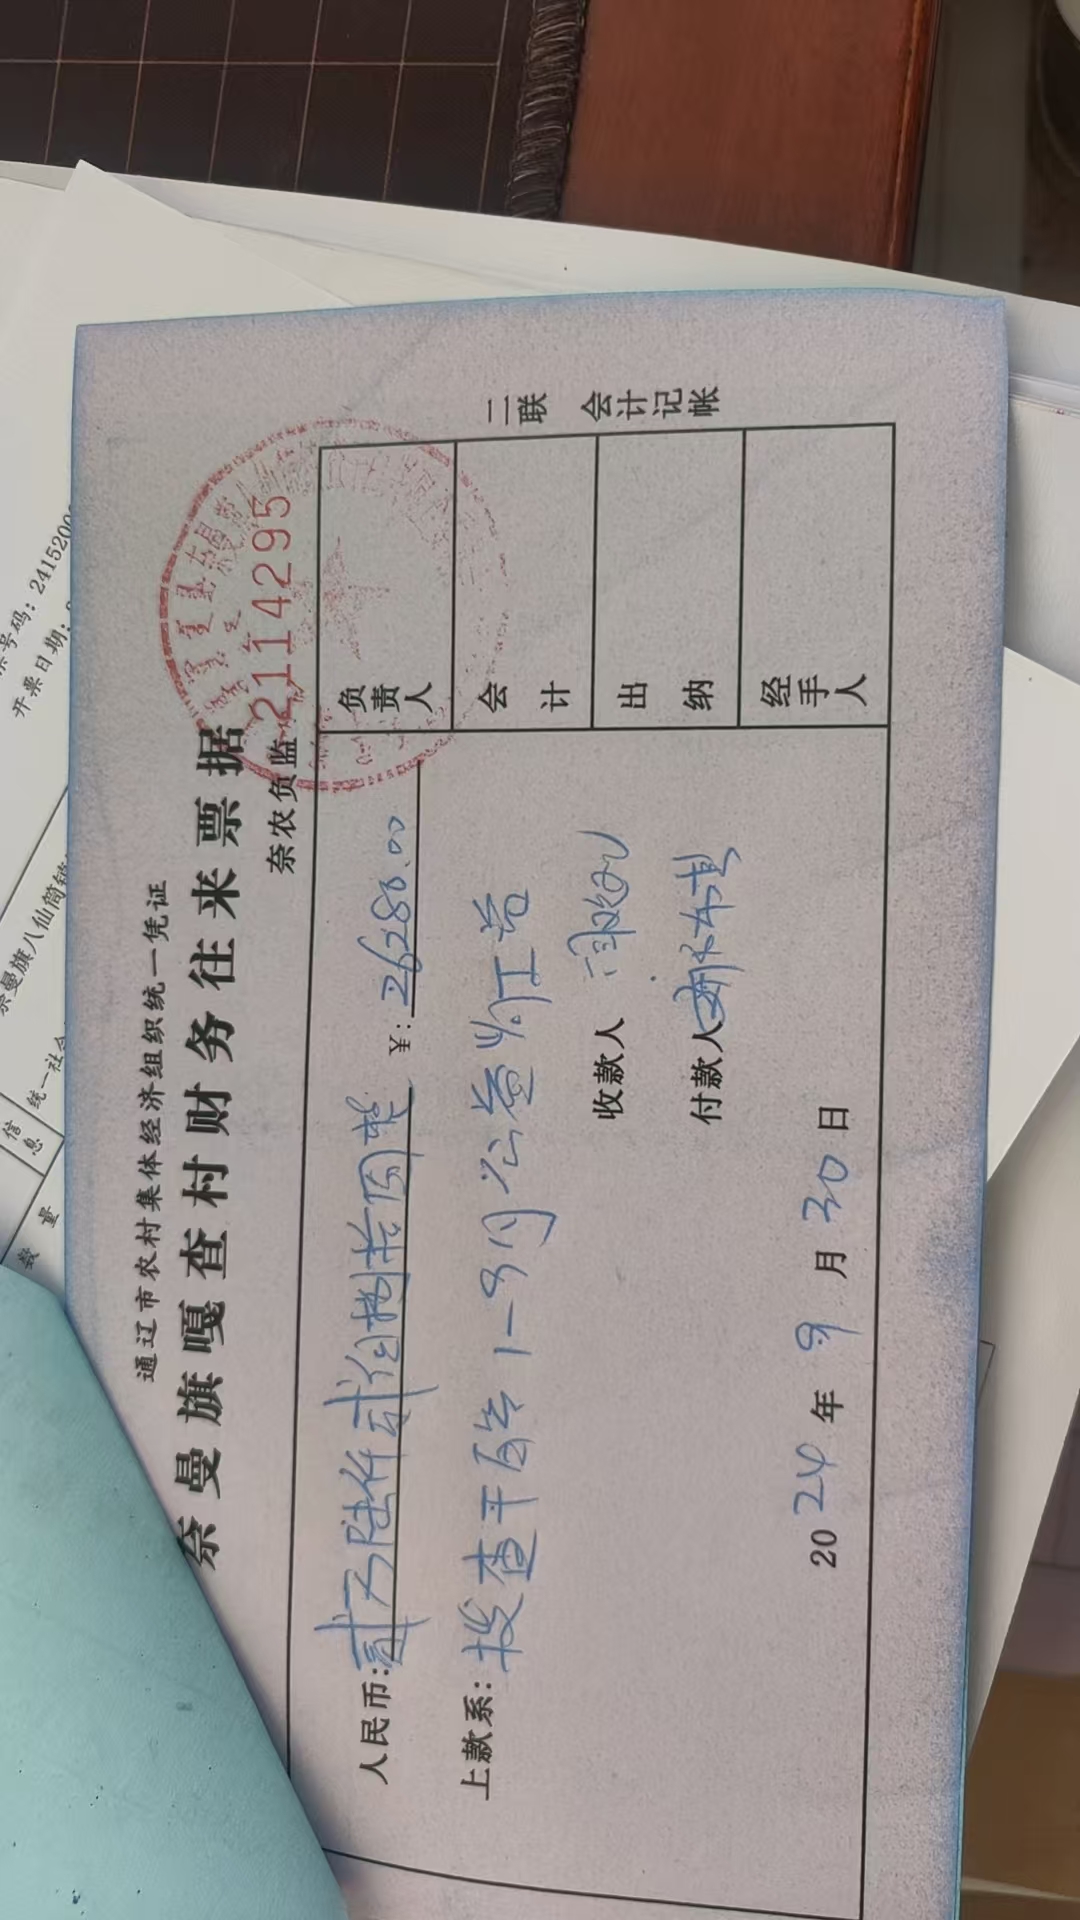 通辽市农村集体经济组织统一凭证
奈曼旗嘎查村财务往来票据
奈农负监 2114295
人民币: 贰万陆仟贰佰捌拾圆整 ¥: 26280.00
上款系: 拨查干 1-9月公益
收款人
付款人
2024年9月30日
负责人
会计
出纳
经手人
二联 会计记帐
票号码: 24152000
开票日期:
奈曼旗八仙筒镇
统一社会
信息
数量